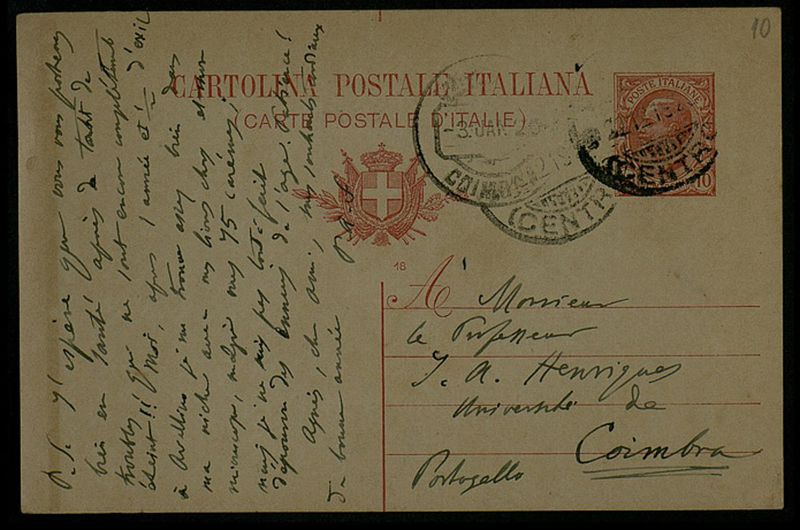 10
CARTOLINA POSTALE ITALIANA
(CARTE POSTALE D'ITALIE)
POSTE ITALIANE
10
-3.JAN.20
COIMBRA
(CENTR
(CENTR
18
A Monsieur
le Professeur
J. A. Henriques
Université de
Coimbra
Portogallo
P.S. J'espère que vous vous portez
bien en santé après de tant de
troubles! que ne sont encore complètement
éteint!! Moi, après 1 année et d'exil
à Avellino je me trouve assez bien dans
ma niche avec mes livres et mon
microscope, malgré mes 75 carêmes;
mais je ne suis pas tout à fait
dépourvu des ennuis de l'age. Patience!
Après, cher ami, mes souhaits cordiaux
de bonne année